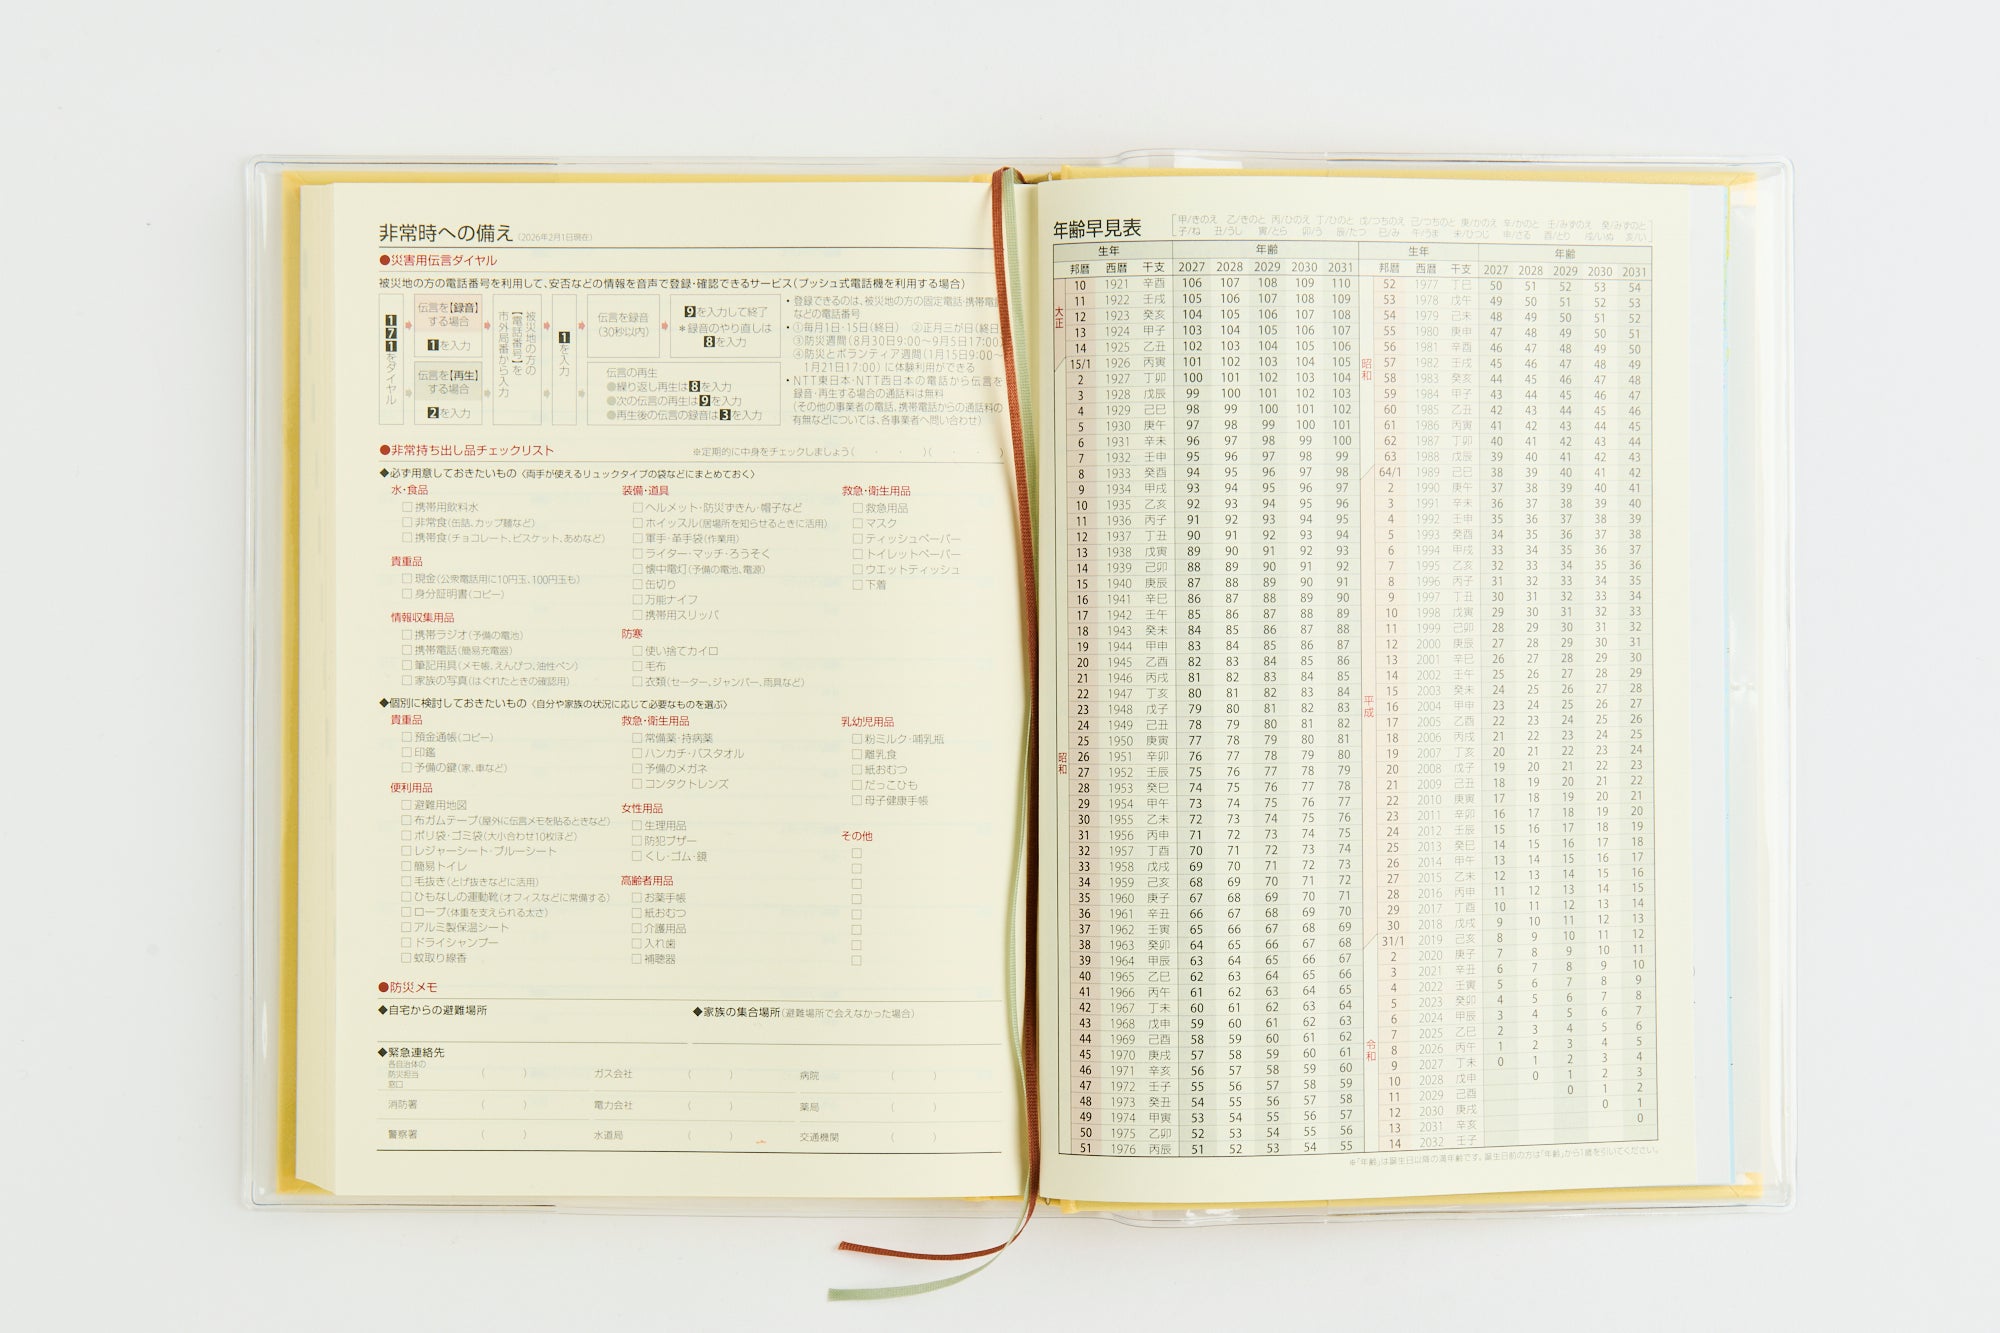 非常時への備え（2026年2月1日現在）
●災害用伝言ダイヤル
被災地の方の電話番号を利用して、安否などの情報を音声で登録・確認できるサービス（プッシュ式電話機を利用する場合）
171をダイヤル
伝言を【録音】
する場合
1を入力
伝言を【再生】
する場合
2を入力
被災地の方の
【電話番号】を
市外局番から入力
1を入力
伝言を録音
（30秒以内）
9を入力して終了
＊録音のやり直しは
8を入力
伝言の再生
●繰り返し再生は8を入力
●次の伝言の再生は9を入力
●再生後の伝言の録音は3を入力
・登録できるのは、被災地の方の固定電話・携帯電話
などの電話番号
・①毎月1日・15日（終日）　②正月三が日（終日）
③防災週間（8月30日9:00～9月5日17:00）
④防災とボランティア週間（1月15日9:00～
1月21日17:00）に体験利用ができる
・NTT東日本・NTT西日本の電話から伝言を
録音・再生する場合の通話料は無料
（その他の事業者の電話、携帯電話からの通話料の
有無などについては、各事業者へ問い合わせ）
●非常持ち出し品チェックリスト
※定期的に中身をチェックしましょう（　・　・　）（　・　・　）
◆必ず用意しておきたいもの〈両手が使えるリュックタイプの袋などにまとめておく〉
水・食品
□携帯用飲料水
□非常食（缶詰、カップ麺など）
□携帯食（チョコレート、ビスケット、あめなど）
貴重品
□現金（公衆電話用に10円玉、100円玉も）
□身分証明書（コピー）
情報収集用品
□携帯ラジオ（予備の電池）
□携帯電話（簡易充電器）
□筆記用具（メモ帳、えんぴつ、油性ペン）
□家族の写真（はぐれたときの確認用）
装備・道具
□ヘルメット・防災ずきん・帽子など
□ホイッスル（居場所を知らせるときに活用）
□軍手・革手袋（作業用）
□ライター・マッチ・ろうそく
□懐中電灯（予備の電池、電源）
□缶切り
□万能ナイフ
□携帯用スリッパ
防寒
□使い捨てカイロ
□毛布
□衣類（セーター、ジャンパー、雨具など）
救急・衛生用品
□救急用品
□マスク
□ティッシュペーパー
□トイレットペーパー
□ウエットティッシュ
□下着
◆個別に検討しておきたいもの〈自分や家族の状況に応じて必要なものを選ぶ〉
貴重品
□預金通帳（コピー）
□印鑑
□予備の鍵（家、車など）
便利用品
□避難用地図
□布ガムテープ（屋外に伝言メモを貼るときなど）
□ポリ袋・ゴミ袋（大小合わせ10枚ほど）
□レジャーシート・ブルーシート
□簡易トイレ
□毛抜き（とげ抜きなどに活用）
□ひもなしの運動靴（オフィスなどに常備する）
□ロープ（体重を支えられる太さ）
□アルミ製保温シート
□ドライシャンプー
□蚊取り線香
救急・衛生用品
□常備薬・持病薬
□ハンカチ・バスタオル
□予備のメガネ
□コンタクトレンズ
女性用品
□生理用品
□防犯ブザー
□くし・ゴム・鏡
高齢者用品
□お薬手帳
□紙おむつ
□介護用品
□入れ歯
□補聴器
乳幼児用品
□粉ミルク・哺乳瓶
□離乳食
□紙おむつ
□だっこひも
□母子健康手帳
その他
□
□
□
□
□
□
□
□
●防災メモ
◆自宅からの避難場所　◆家族の集合場所（避難場所で会えなかった場合）
◆緊急連絡先
各自治体の
防災担当
窓口　（　　）　ガス会社　（　　）　病院　（　　）
消防署　（　　）　電力会社　（　　）　薬局　（　　）
警察署　（　　）　水道局　（　　）　交通機関　（　　）
年齢早見表
甲/きのえ　乙/きのと　丙/ひのえ　丁/ひのと　戊/つちのえ　己/つちのと　庚/かのえ　辛/かのと　壬/みずのえ　癸/みずのと
子/ね　丑/うし　寅/とら　卯/う　辰/たつ　巳/み　午/うま　未/ひつじ　申/さる　酉/とり　戌/いぬ　亥/い
生年　年齢　生年　年齢
邦暦 西暦 干支 2027 2028 2029 2030 2031 邦暦 西暦 干支 2027 2028 2029 2030 2031
大正
昭和
昭和
平成
令和
10 1921 辛酉 106 107 108 109 110 52 1977 丁巳 50 51 52 53 54
11 1922 壬戌 105 106 107 108 109 53 1978 戊午 49 50 51 52 53
12 1923 癸亥 104 105 106 107 108 54 1979 己未 48 49 50 51 52
13 1924 甲子 103 104 105 106 107 55 1980 庚申 47 48 49 50 51
14 1925 乙丑 102 103 104 105 106 56 1981 辛酉 46 47 48 49 50
15/1 1926 丙寅 101 102 103 104 105 57 1982 壬戌 45 46 47 48 49
2 1927 丁卯 100 101 102 103 104 58 1983 癸亥 44 45 46 47 48
3 1928 戊辰 99 100 101 102 103 59 1984 甲子 43 44 45 46 47
4 1929 己巳 98 99 100 101 102 60 1985 乙丑 42 43 44 45 46
5 1930 庚午 97 98 99 100 101 61 1986 丙寅 41 42 43 44 45
6 1931 辛未 96 97 98 99 100 62 1987 丁卯 40 41 42 43 44
7 1932 壬申 95 96 97 98 99 63 1988 戊辰 39 40 41 42 43
8 1933 癸酉 94 95 96 97 98 64/1 1989 己巳 38 39 40 41 42
9 1934 甲戌 93 94 95 96 97 2 1990 庚午 37 38 39 40 41
10 1935 乙亥 92 93 94 95 96 3 1991 辛未 36 37 38 39 40
11 1936 丙子 91 92 93 94 95 4 1992 壬申 35 36 37 38 39
12 1937 丁丑 90 91 92 93 94 5 1993 癸酉 34 35 36 37 38
13 1938 戊寅 89 90 91 92 93 6 1994 甲戌 33 34 35 36 37
14 1939 己卯 88 89 90 91 92 7 1995 乙亥 32 33 34 35 36
15 1940 庚辰 87 88 89 90 91 8 1996 丙子 31 32 33 34 35
16 1941 辛巳 86 87 88 89 90 9 1997 丁丑 30 31 32 33 34
17 1942 壬午 85 86 87 88 89 10 1998 戊寅 29 30 31 32 33
18 1943 癸未 84 85 86 87 88 11 1999 己卯 28 29 30 31 32
19 1944 甲申 83 84 85 86 87 12 2000 庚辰 27 28 29 30 31
20 1945 乙酉 82 83 84 85 86 13 2001 辛巳 26 27 28 29 30
21 1946 丙戌 81 82 83 84 85 14 2002 壬午 25 26 27 28 29
22 1947 丁亥 80 81 82 83 84 15 2003 癸未 24 25 26 27 28
23 1948 戊子 79 80 81 82 83 16 2004 甲申 23 24 25 26 27
24 1949 己丑 78 79 80 81 82 17 2005 乙酉 22 23 24 25 26
25 1950 庚寅 77 78 79 80 81 18 2006 丙戌 21 22 23 24 25
26 1951 辛卯 76 77 78 79 80 19 2007 丁亥 20 21 22 23 24
27 1952 壬辰 75 76 77 78 79 20 2008 戊子 19 20 21 22 23
28 1953 癸巳 74 75 76 77 78 21 2009 己丑 18 19 20 21 22
29 1954 甲午 73 74 75 76 77 22 2010 庚寅 17 18 19 20 21
30 1955 乙未 72 73 74 75 76 23 2011 辛卯 16 17 18 19 20
31 1956 丙申 71 72 73 74 75 24 2012 壬辰 15 16 17 18 19
32 1957 丁酉 70 71 72 73 74 25 2013 癸巳 14 15 16 17 18
33 1958 戊戌 69 70 71 72 73 26 2014 甲午 13 14 15 16 17
34 1959 己亥 68 69 70 71 72 27 2015 乙未 12 13 14 15 16
35 1960 庚子 67 68 69 70 71 28 2016 丙申 11 12 13 14 15
36 1961 辛丑 66 67 68 69 70 29 2017 丁酉 10 11 12 13 14
37 1962 壬寅 65 66 67 68 69 30 2018 戊戌 9 10 11 12 13
38 1963 癸卯 64 65 66 67 68 31/1 2019 己亥 8 9 10 11 12
39 1964 甲辰 63 64 65 66 67 2 2020 庚子 7 8 9 10 11
40 1965 乙巳 62 63 64 65 66 3 2021 辛丑 6 7 8 9 10
41 1966 丙午 61 62 63 64 65 4 2022 壬寅 5 6 7 8 9
42 1967 丁未 60 61 62 63 64 5 2023 癸卯 4 5 6 7 8
43 1968 戊申 59 60 61 62 63 6 2024 甲辰 3 4 5 6 7
44 1969 己酉 58 59 60 61 62 7 2025 乙巳 2 3 4 5 6
45 1970 庚戌 57 58 59 60 61 8 2026 丙午 1 2 3 4 5
46 1971 辛亥 56 57 58 59 60 9 2027 丁未 0 1 2 3 4
47 1972 壬子 55 56 57 58 59 10 2028 戊申 0 1 2 3
48 1973 癸丑 54 55 56 57 58 11 2029 己酉 0 1 2
49 1974 甲寅 53 54 55 56 57 12 2030 庚戌 0 1
50 1975 乙卯 52 53 54 55 56 13 2031 辛亥 0
51 1976 丙辰 51 52 53 54 55 14 2032 壬子
※「年齢」は誕生日以降の満年齢です。誕生日前の方は「年齢」から1歳を引いてください。